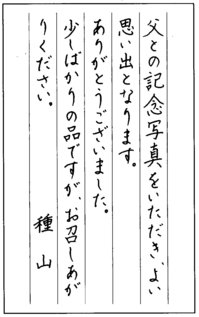 父との記念写真をいただき、よい
思い出となります。
ありがとうございました。
少しばかりの品ですが、お召しあが
りください。
種山